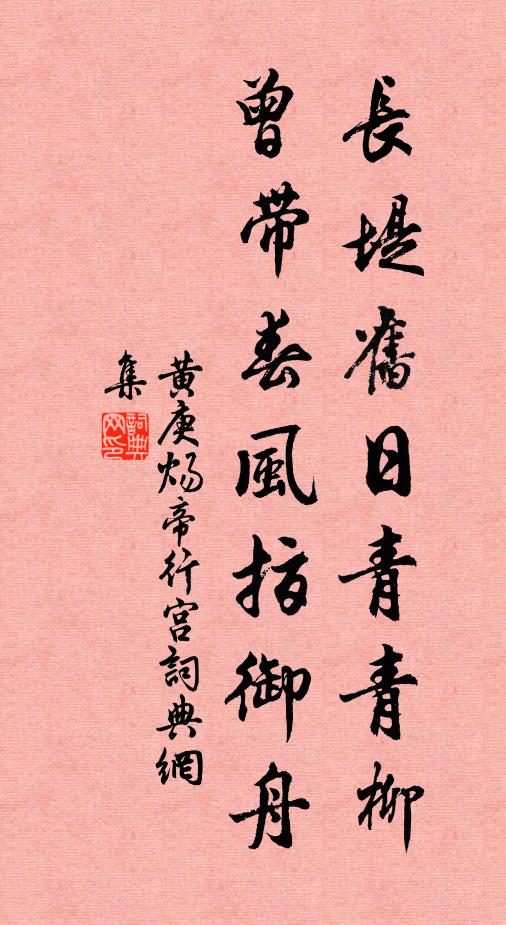 長堤舊日青青柳
曾帶春風御舟
黃庚煬帝行宮詞典網
集
詞典
网印